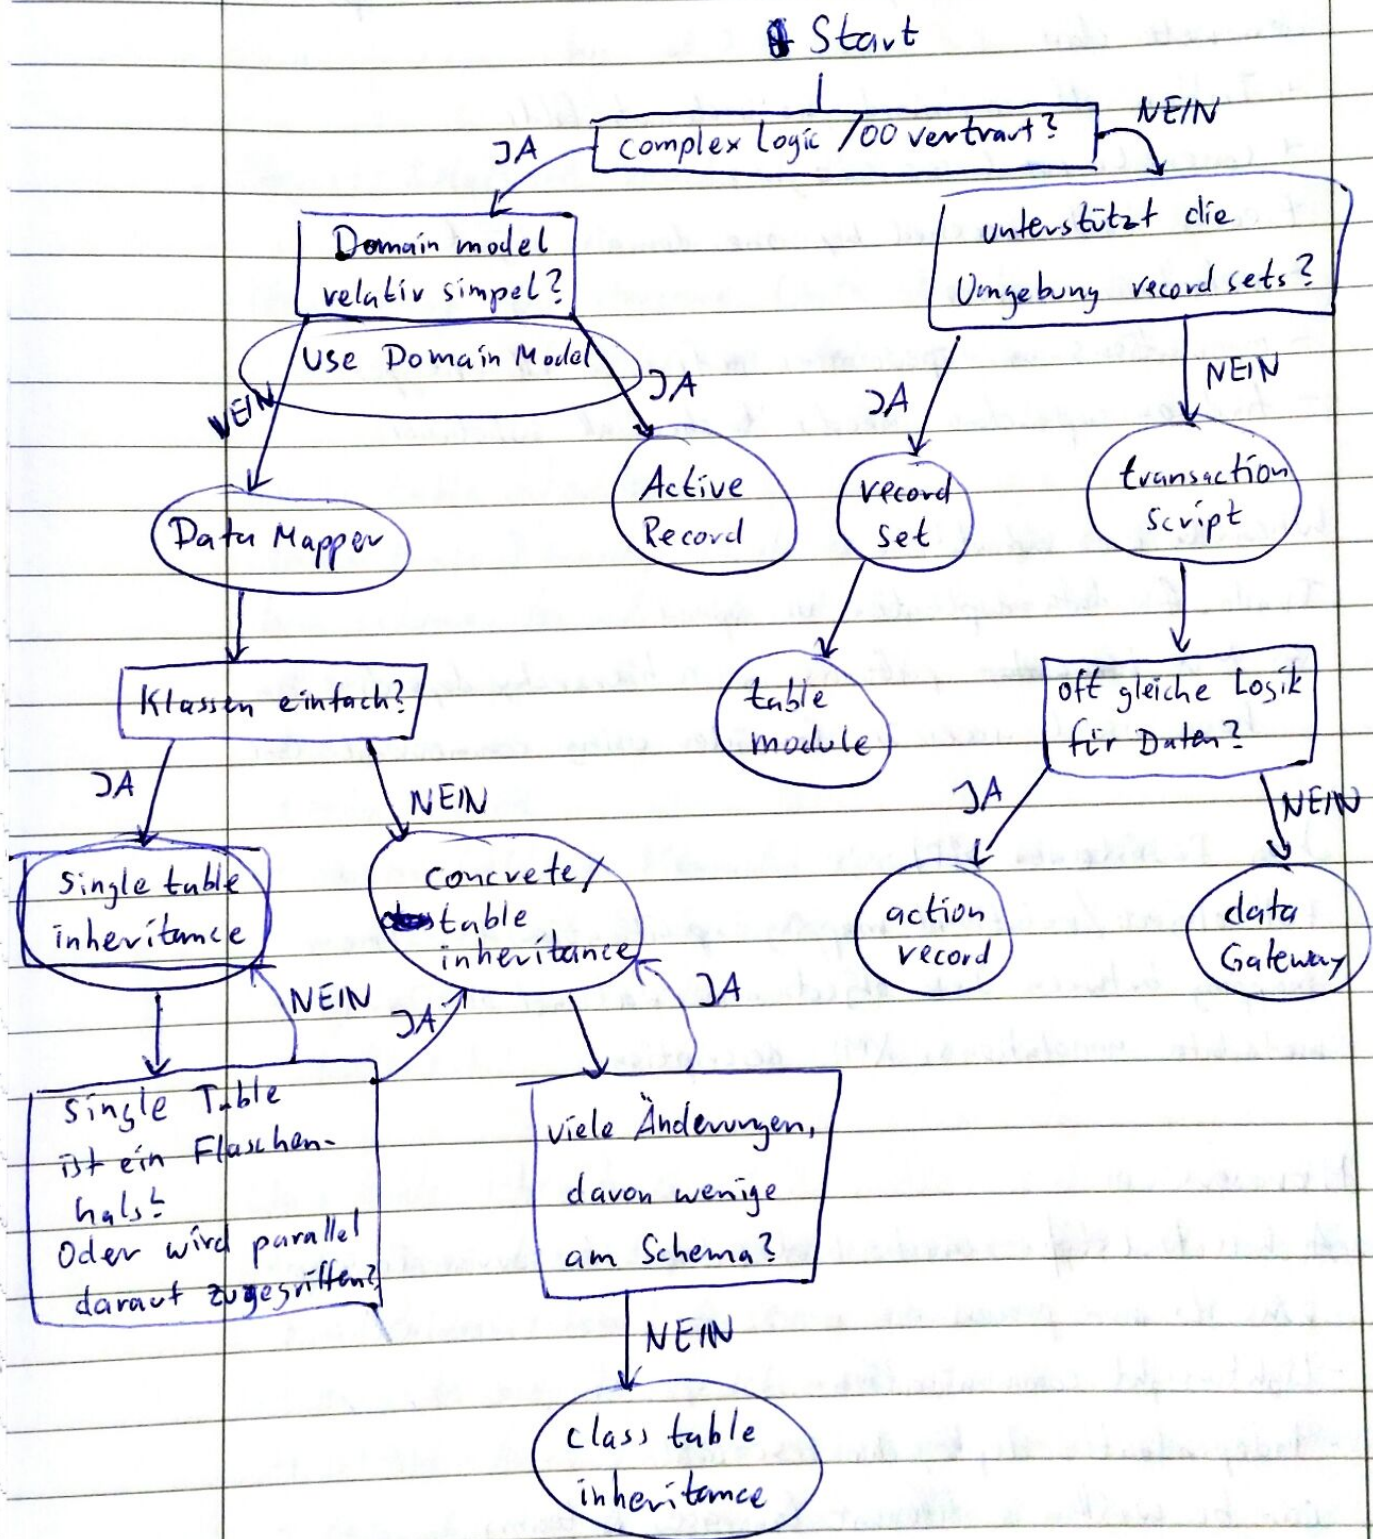 Start
complex Logic / OO vertraut?
JA
NEIN
Domain model
relativ simpel?
unterstützt die
Umgebung record sets?
Use Domain Model
NEIN
JA
JA
NEIN
Data Mapper
Active
Record
record
set
transaction
script
Klassen einfach?
table
module
oft gleiche Logik
für Daten?
JA
NEIN
JA
NEIN
Single table
inheritance
concrete/
table
inheritance
action
record
data
Gateway
NEIN
JA
JA
Single Table
ist ein Flaschen-
hals?
Oder wird parallel
darauf zugegriffen?
viele Änderungen,
davon wenige
am Schema?
NEIN
class table
inheritance